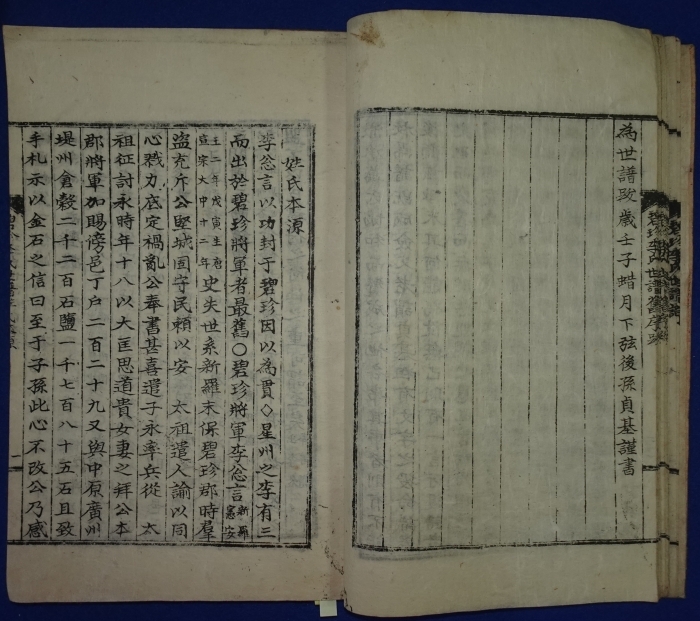 為世譜跋歲壬子蜡月下弦後孫貞基謹書
碧珍李氏世譜舊序跋
姓氏本源
李忩言以功封于碧珍因以為貫◇星州之李有三
而出於碧珍將軍者最舊○碧珍將軍李忩言新羅憲安
王二年戊寅生唐宣宗大中十二年史失世系新羅末保碧珍郡時羣
盜充斥公堅城固守民賴以安 太祖遣人諭以同
心戮力底定禍亂公奉書甚喜遣子永率兵從 太
祖征討永時年十八以大匡思道貴女妻之拜公本
郡將軍加賜傍邑丁戶二百二十九又與中原廣州
堤州倉穀二千二百石鹽一千七百八十五石且致
手札示以金石之信曰至于子孫此心不改公乃感